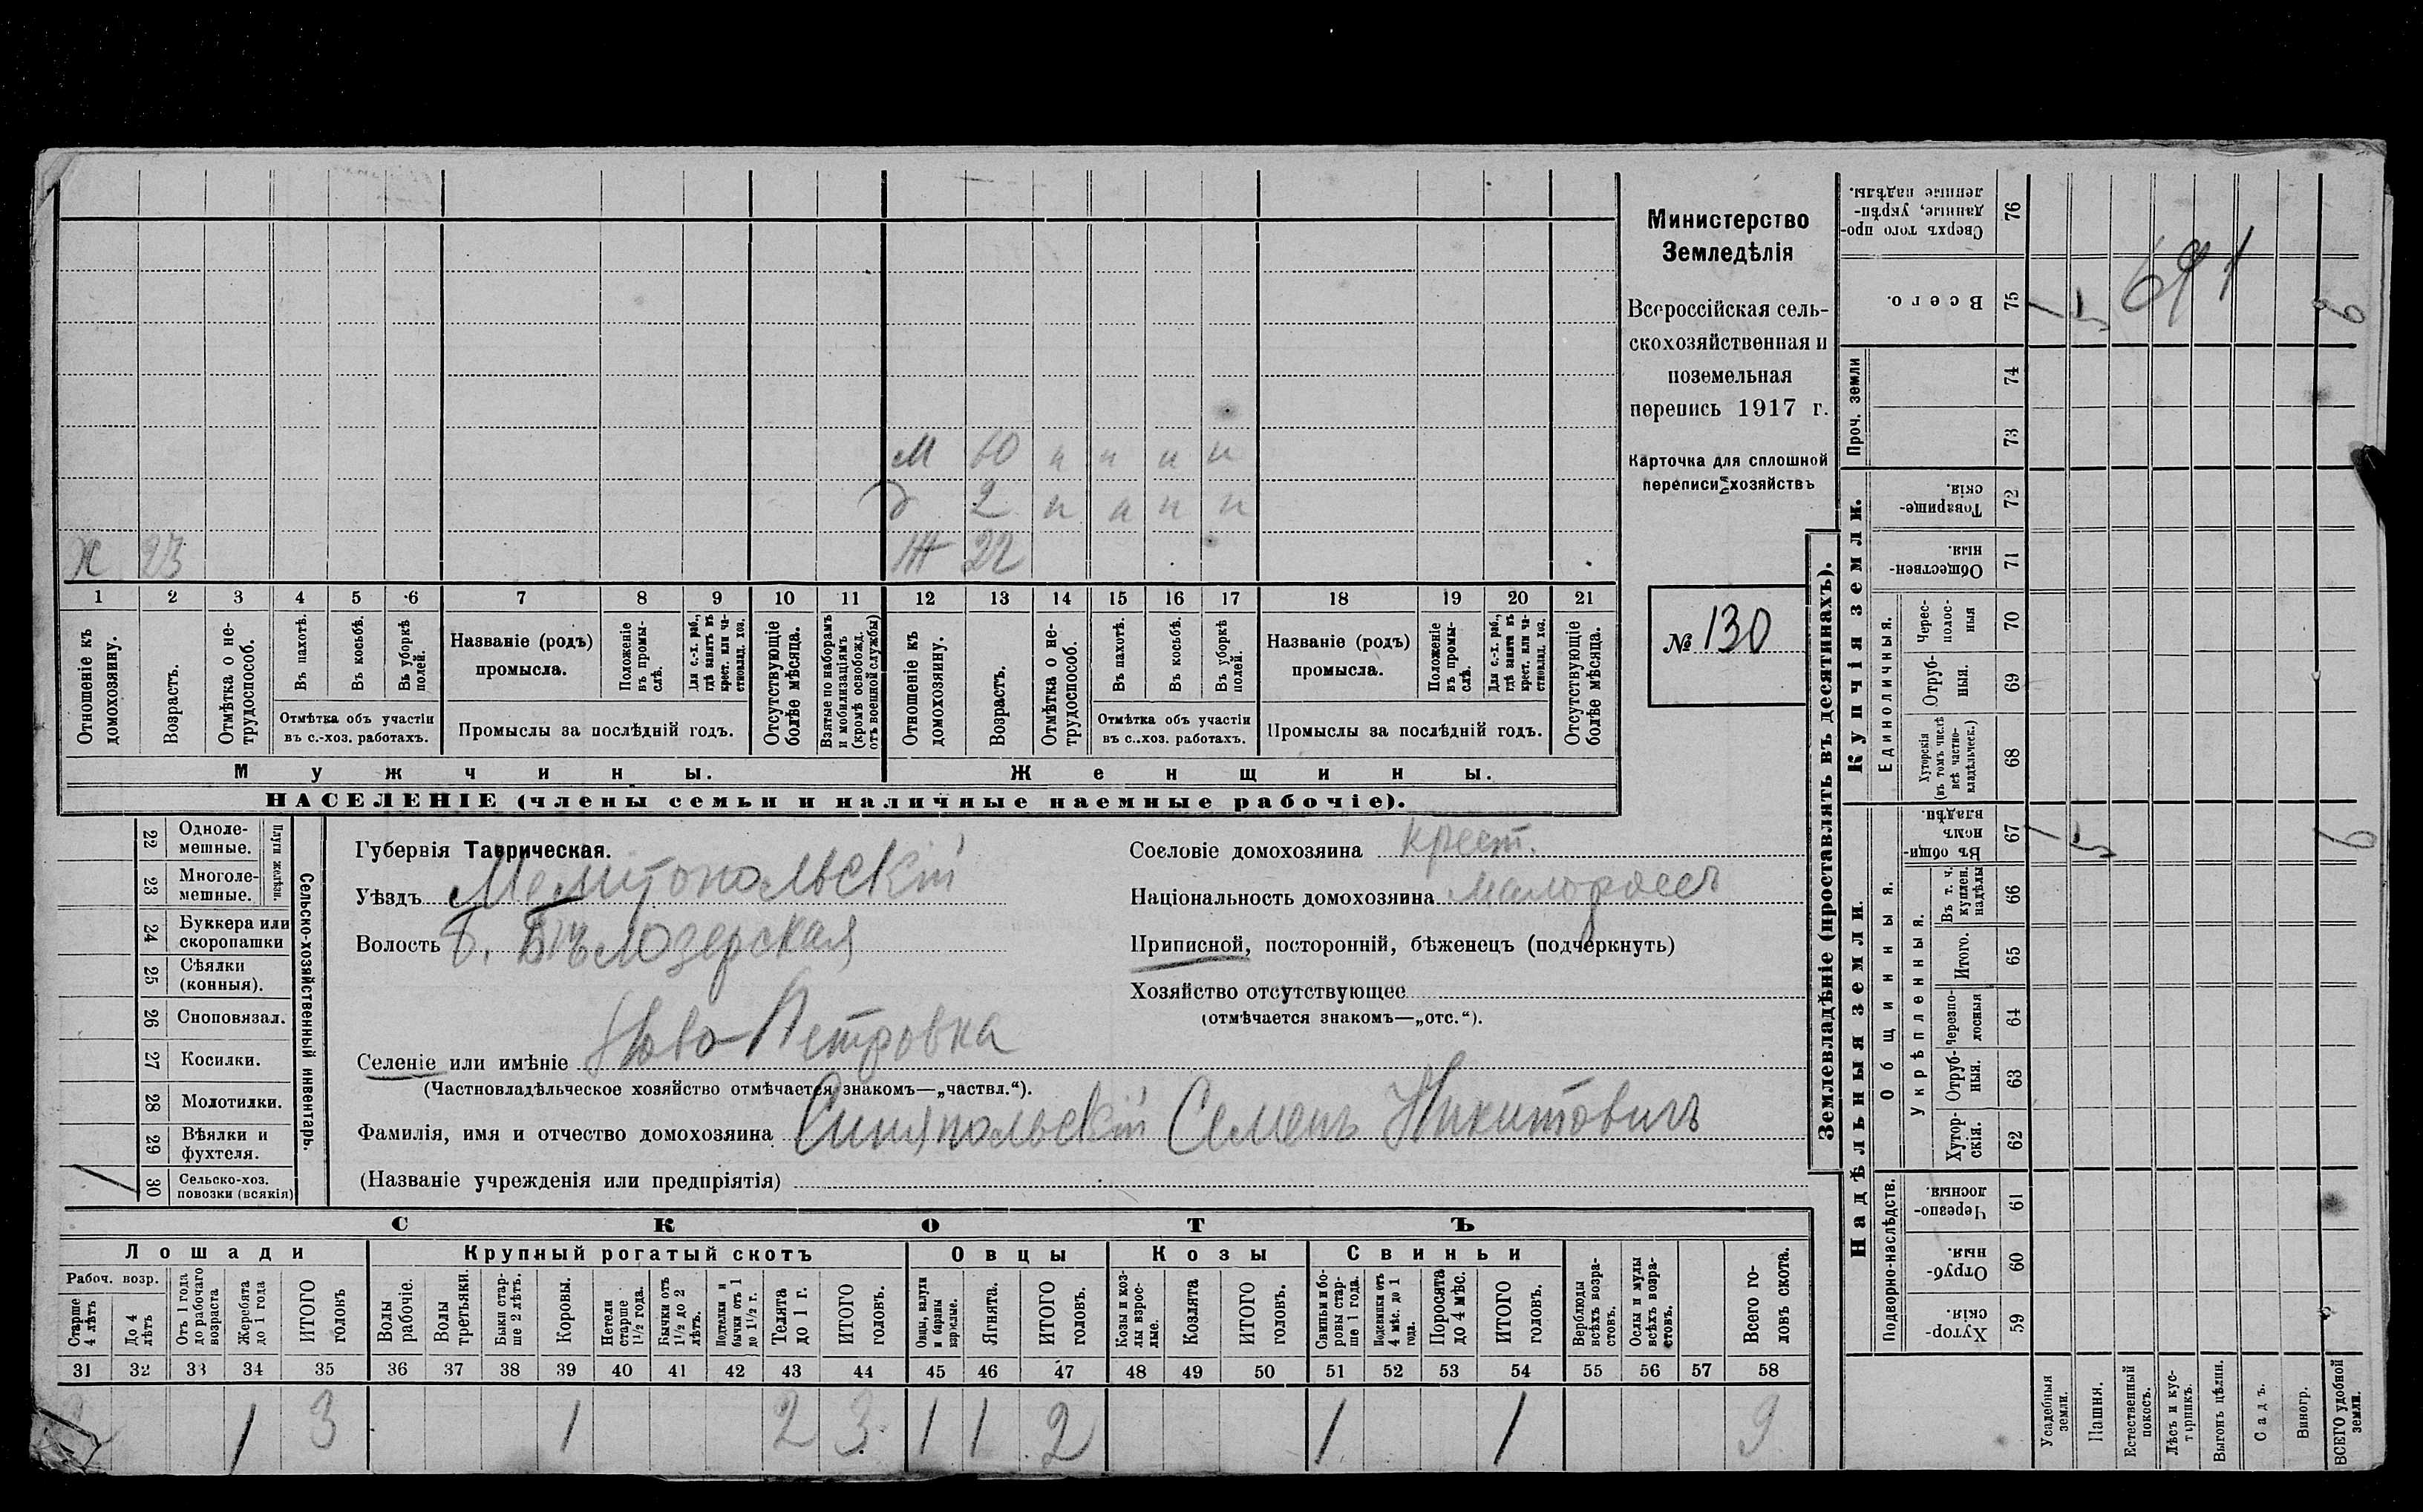 М 60 н н н н
д 2 н н н н
Х 23 Ж 22
1 2 3 4 5 6 7 8 9 10 11 12 13 14 15 16 17 18 19 20 21
Отношеніе къ домохозяину.
Возрастъ.
Отмѣтка о нетрудоспособ.
Въ пахотѣ.
Въ косьбѣ.
Въ уборкѣ полей.
Отмѣтка объ участіи
въ с.-хоз. работахъ.
Названіе (родъ)
промысла.
Положеніе въ промыслѣ.
Для с.-х. раб., гдѣ занятъ въ крест. или частновлад. хоз.
Промыслы за послѣдній годъ.
Отсутствующіе болѣе мѣсяца.
Взятые по наборамъ и мобилизаціямъ (кромѣ освобожд. отъ военной службы)
Отношеніе къ домохозяину.
Возрастъ.
Отмѣтка о нетрудоспособ.
Въ пахотѣ.
Въ косьбѣ.
Въ уборкѣ полей.
Отмѣтка объ участіи
въ с.-хоз. работахъ.
Названіе (родъ)
промысла.
Положеніе въ промыслѣ.
Для с.-х. раб., гдѣ занятъ въ крест. или частновлад. хоз.
Промыслы за послѣдній годъ.
Отсутствующіе болѣе мѣсяца.
Мужчины. Женщины.
НАСЕЛЕНІЕ (члены семьи и наличные наемные рабочіе).
Министерство
Земледѣлія
Всероссійская сель-
скохозяйственная и
поземельная
перепись 1917 г.
Карточка для сплошной
переписи хозяйствъ
№ 130
22 Одноле-
мешные.
23 Многоле-
мешные.
Плуги желѣзн.
24 Буккера или
скоропашки
25 Сѣялки
(конныя).
26 Сноповязал.
27 Косилки.
28 Молотилки.
29 Вѣялки и
фухтеля.
1 30 Сельско-хоз.
повозки (всякія)
Сельско-хозяйственный инвентарь.
Губернія Таврическая.
Уѣздъ Мелитопольскій
Волость Б. Бѣлозерская
Селеніе или имѣніе Ново-Петровка
(Частновладѣльческое хозяйство отмѣчается знакомъ—„частвл.“).
Фамилія, имя и отчество домохозяина Синяпольскій Семенъ Никитовичъ
(Названіе учрежденія или предпріятія)
Сословіе домохозяина крест.
Національность домохозяина малороссъ
Приписной, посторонній, бѣженецъ (подчеркнуть)
Хозяйство отсутствующее
(отмѣчается знакомъ—„отс.“).
СКОТЪ
Лошади Крупный рогатый скотъ Овцы Козы Свиньи
Рабоч. возр.
Старше 4 лѣтъ
До 4 лѣтъ
Отъ 1 года до рабочаго возраста
Жеребята до 1 года
ИТОГО головъ
Волы рабочіе.
Волы третьяки.
Быки старше 2 лѣтъ.
Коровы.
Нетели старше 1 1/2 года.
Бычки отъ 1 1/2 до 2 лѣтъ.
Подтелки и бычки отъ 1 до 1 1/2 г.
Телята до 1 г.
ИТОГО головъ.
Овцы, валухи и бараны взрослые.
Ягнята.
ИТОГО головъ.
Козы и козлы взрослые.
Козлята
ИТОГО головъ.
Свиньи и боровы старше 1 года.
Подсвинки отъ 4 мѣс. до 1 года.
Поросята до 4 мѣс.
ИТОГО головъ.
Верблюды всѣхъ возрастовъ.
Ослы и мулы всѣхъ возрастовъ.
Всего головъ скота.
31 32 33 34 35 36 37 38 39 40 41 42 43 44 45 46 47 48 49 50 51 52 53 54 55 56 57 58
1 3 1 2 3 1 1 2 1 1 9
Землевладѣніе (проставлять въ десятинахъ).
Надѣльныя земли. Купчія земли. Проч. земли
Подворно-наслѣдств. Общинныя. Единоличныя.
Укрѣпленныя.
Хуторскія. 59
Отрубныя. 60
Черезполосныя. 61
Хуторскія. 62
Отрубныя. 63
Черезполосныя 64
Итого. 65
Въ т. ч. куплен. надѣлы 66
Въ общинномъ владѣн. 67
Хуторскія (въ томъ числѣ всѣ частновладѣльческ.) 68
Отрубныя. 69
Черезполосныя 70
Общественныя. 71
Товарищескія. 72
73
74
Всего. 75
Сверхъ того проданные, укрѣпленные надѣлы. 76
Усадебныя земли.
Пашня.
Естественный покосъ.
Лѣсъ и кустарникъ.
Выгонъ цѣлин.
Садъ.
Виногр.
ВСЕГО удобной земли.
691
1 5 6
1 5 6